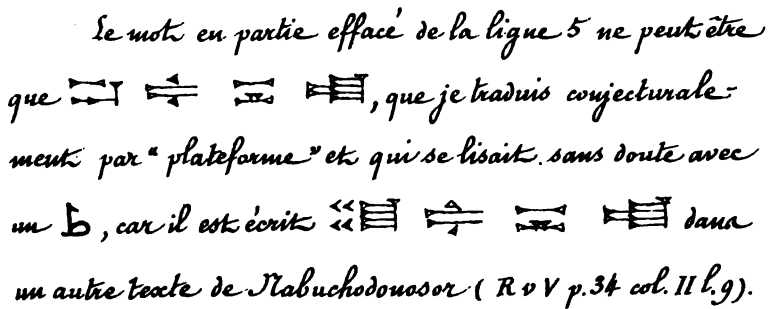 Le mot en partie effacé de la ligne 5 ne peut être
que , que je traduis conjecturale-
ment par " plateforme " et qui se lisait sans doute avec
un , car il est écrit dans
un autre texte de Nabuchodonosor ( R v V p. 34 col. II l. 9).